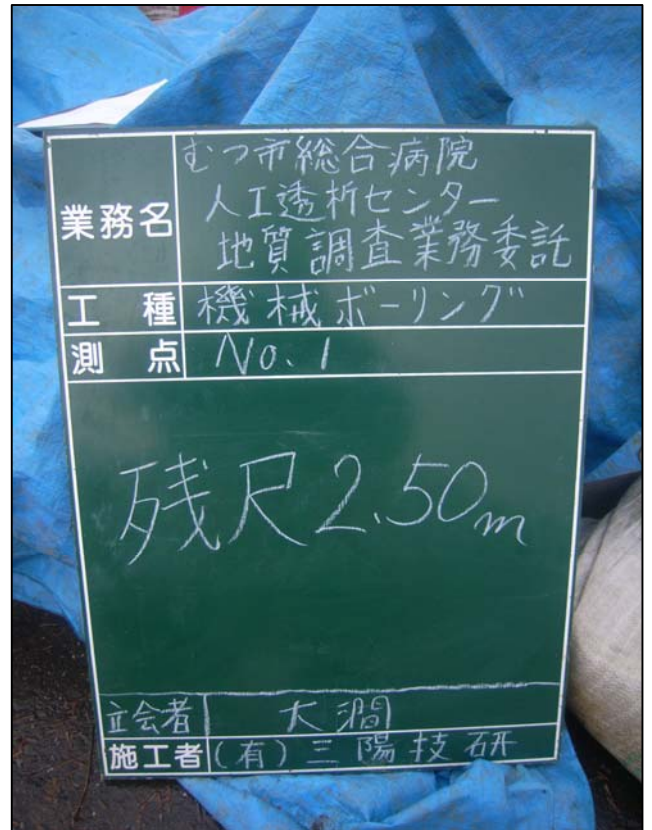 むつ市総合病院
業務名 人工透析センター
地質調査業務委託
工種 機械ボーリング
測点 No.1
残尺2.50m
立会者 大澗
施工者 (有)三陽技研